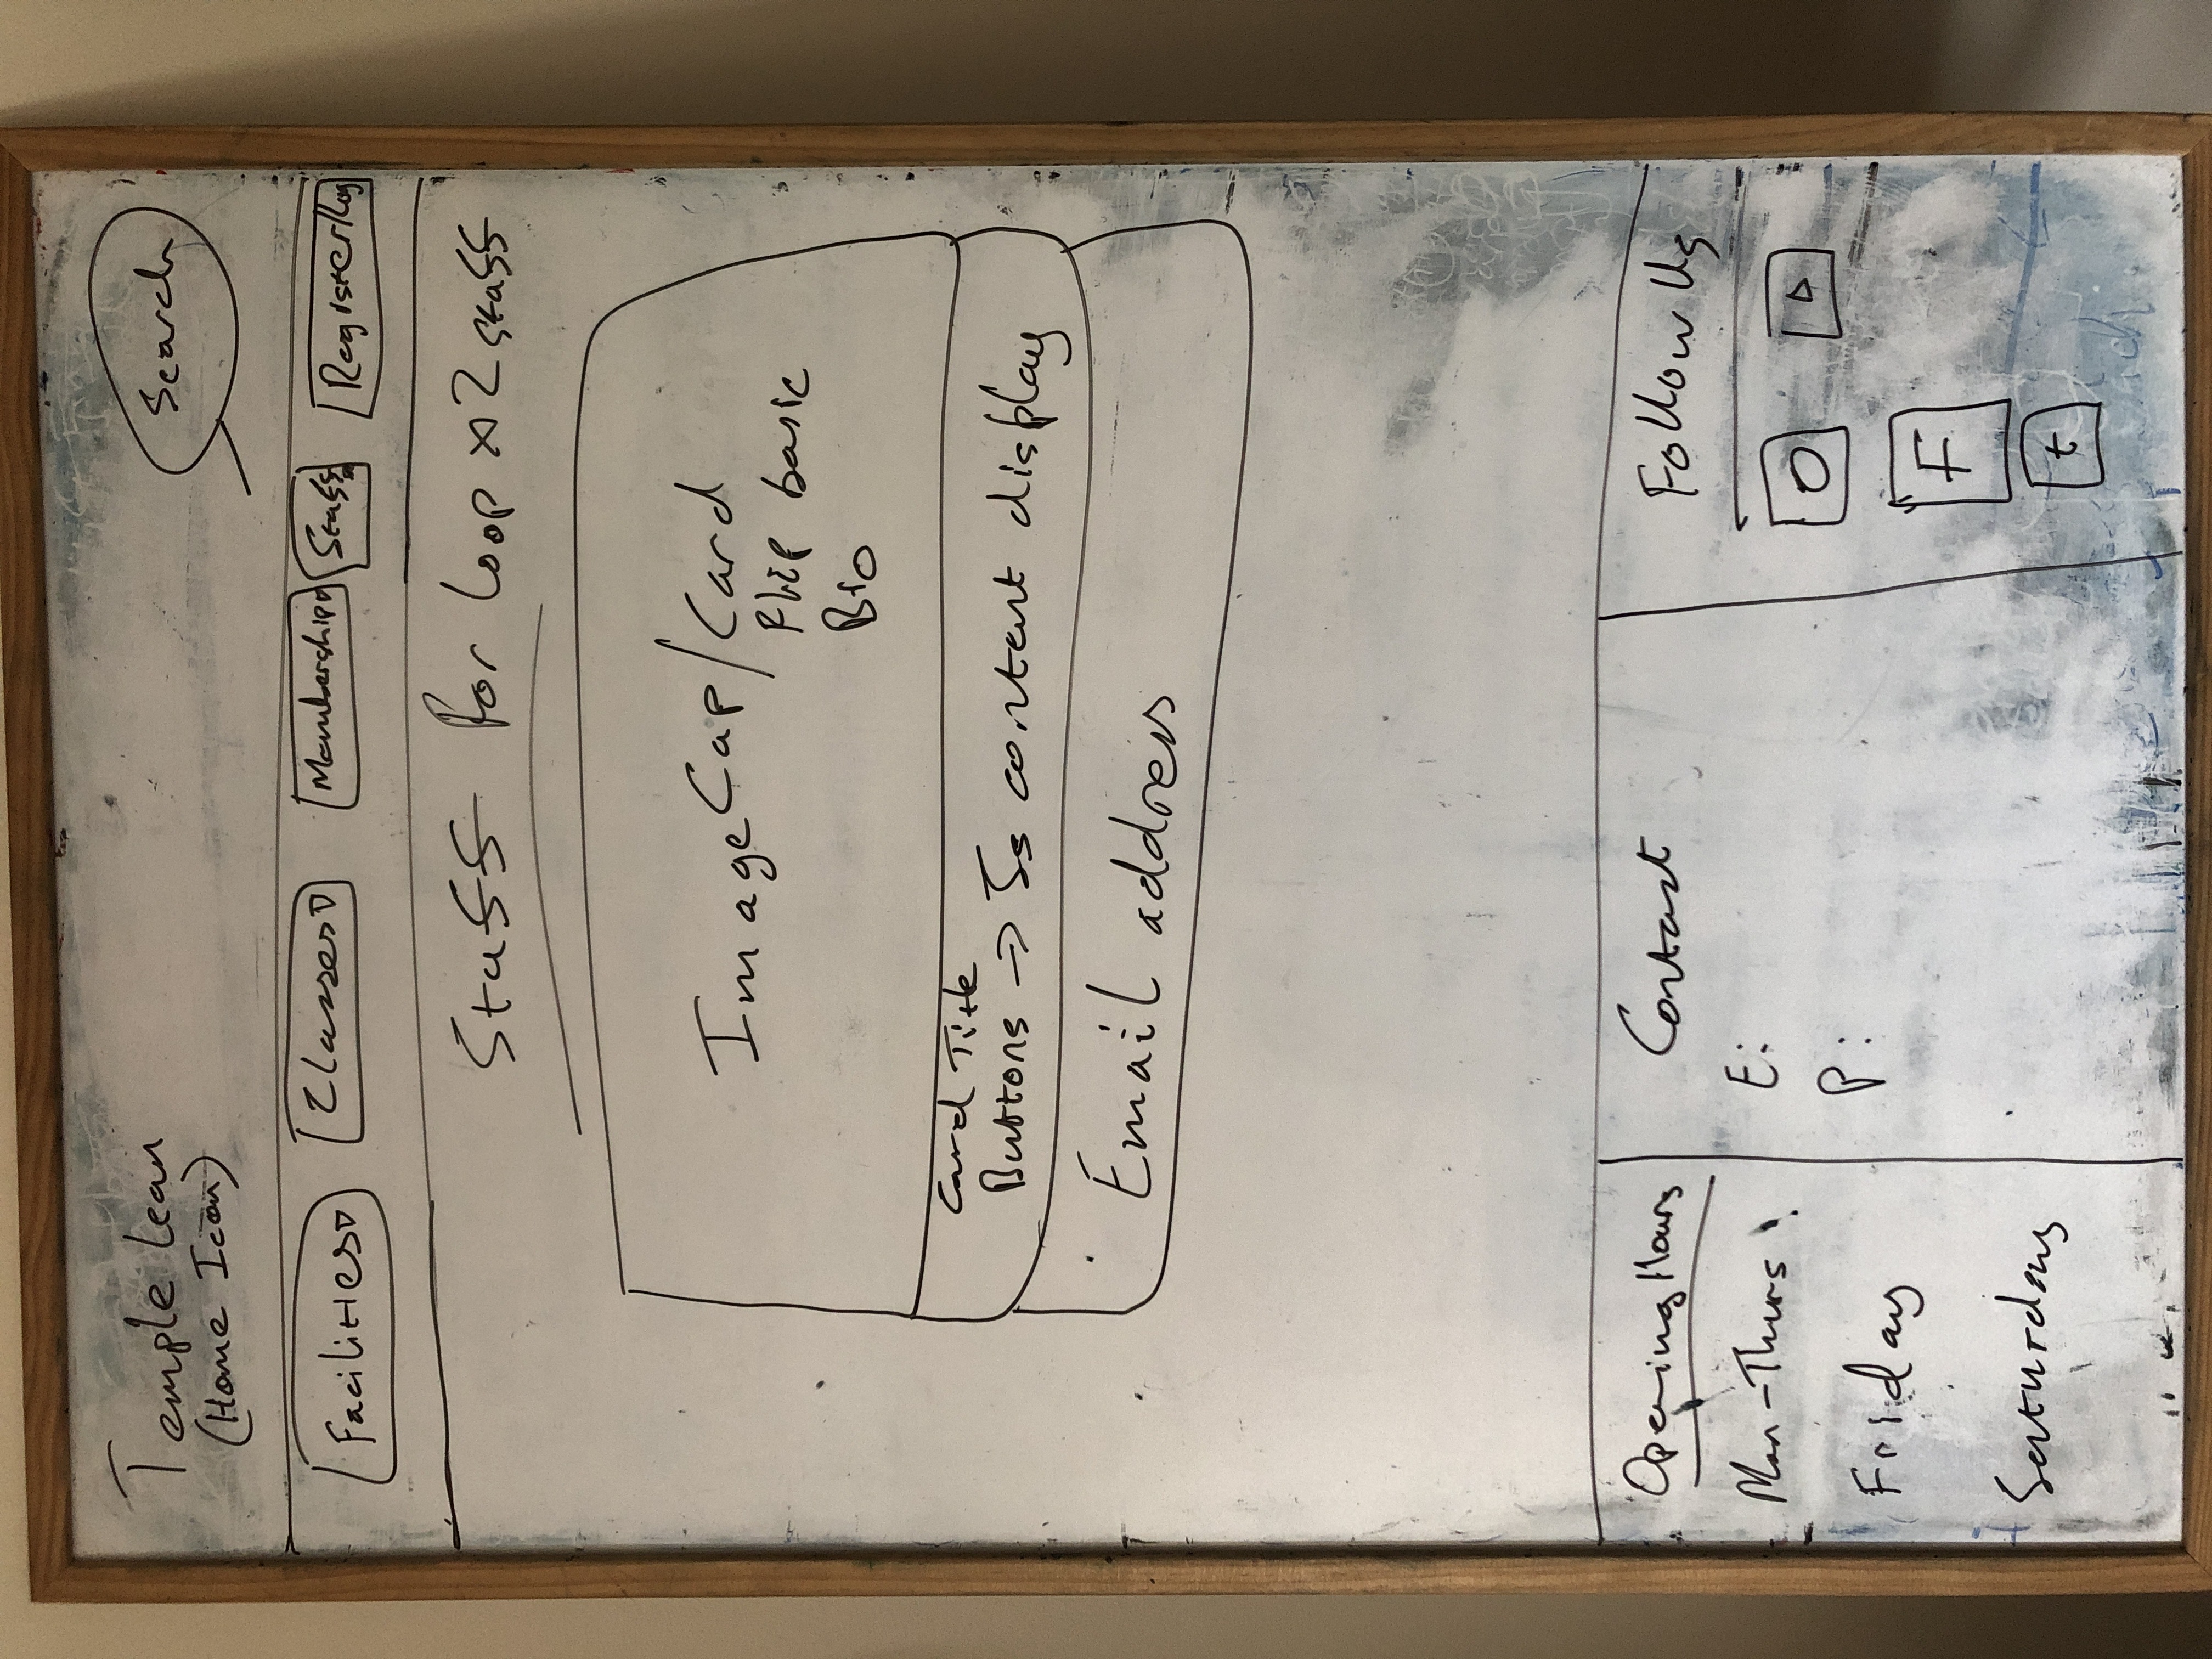 Temple lean
(Home Icon)
Search
Facilities
Classes
Membership
Staff
Register/log
Staff For loop x2 staff
Image Cap/Card
Flip basic
Bio
Card Title
Buttons -> Js content display
Email address
Opening Hours
Mon-Thurs:
Friday
Saturday
Contact
E:
P:
Follow Us
F
t